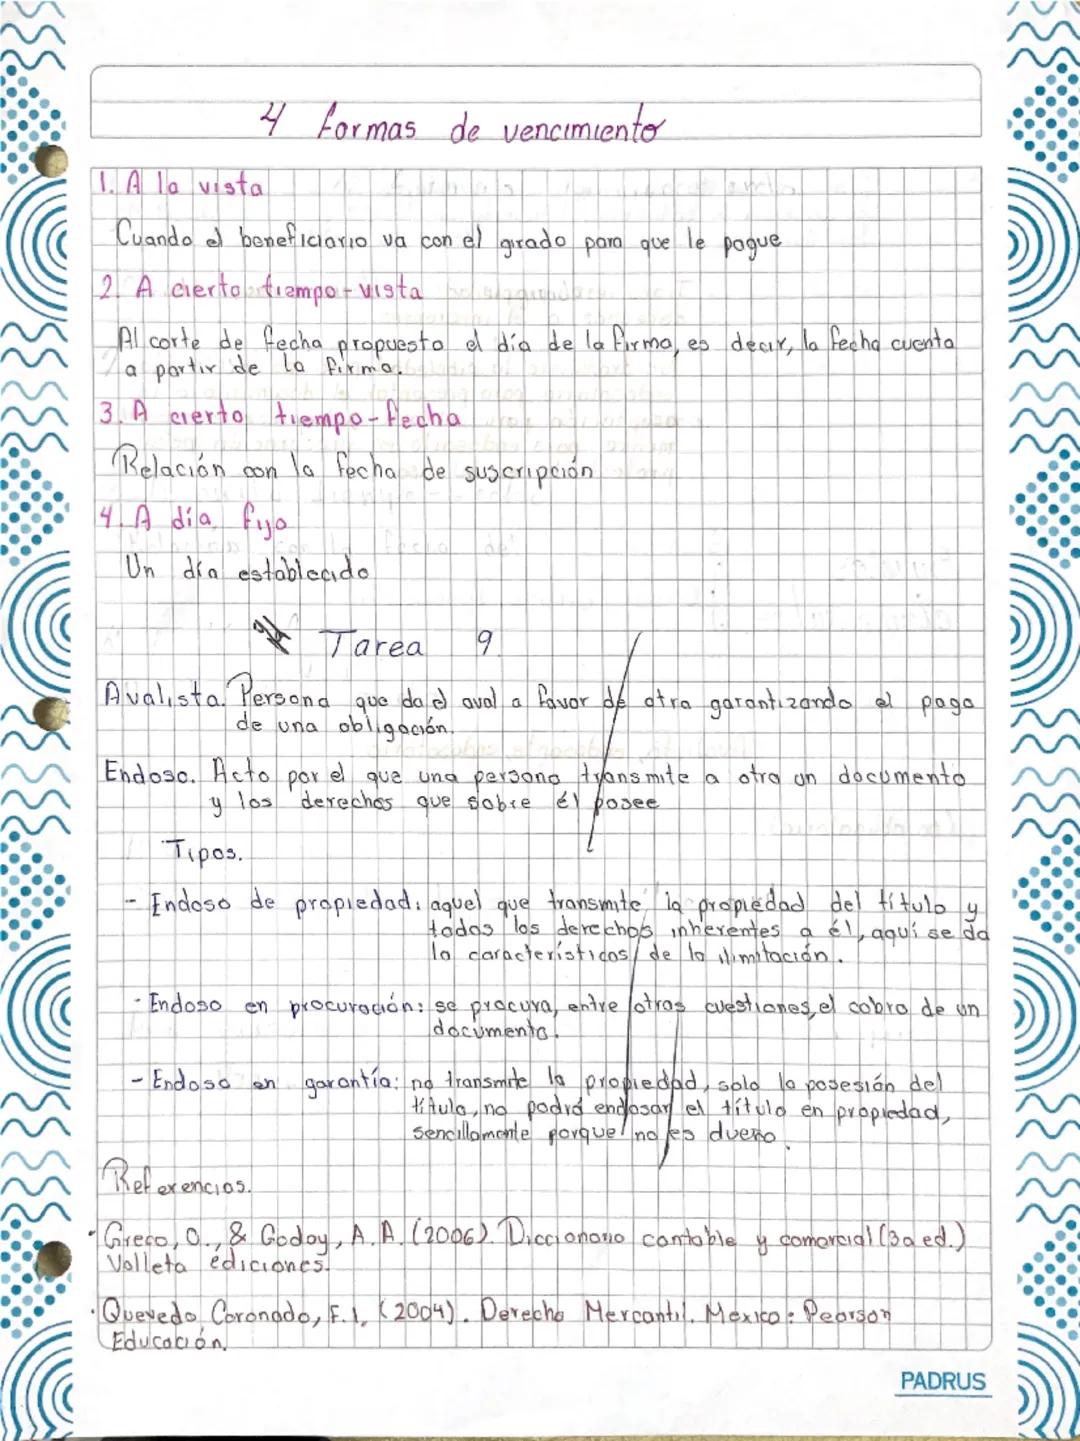 4 formas de vencimiento
1. A la vista
Cuando el beneficiario va con el girado para que le pague
2. A cierto tiempo-vista
Al corte de fecha propuesto el día de la firma, es decir, la fecha cuenta
a partir de la firma.
3. A cierto tiempo-fecha
Relación con la fecha de suscripción
4. A día fijo
Un día establecido
Tarea 9.
Avalista. Persona que da el aval a favor de otra garantizando el pago
de una obligación.
Endoso. Acto por el que una persona transmite a otra un documento
y los derechos que sobre él posee
Tipos.
- Endoso de propiedad: aquel que transmite la propiedad del título y
todos los derechos inherentes a él, aquí se da
la características de la ilimitación.
- Endoso en procuración: se procura, entre otras cuestiones, el cobro de un
documento.
- Endoso en garantía: no transmite la propiedad, solo la posesión del
título, no podrá endosar el título en propiedad,
sencillamente porque no es dueño.
Referencias.
· Greco, O., & Godoy, A. A. (2006). Diccionario contable y comercial (3a ed.)
Valleta ediciones.
· Quevedo Coronado, F. I. (2004). Derecho Mercantil. Mexico: Pearson
Educación.
PADRUS